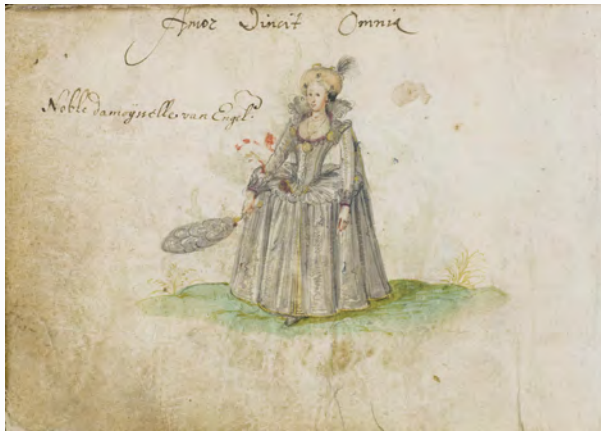 Amor Vincit Omnia
Noble damoyselle van Engel.